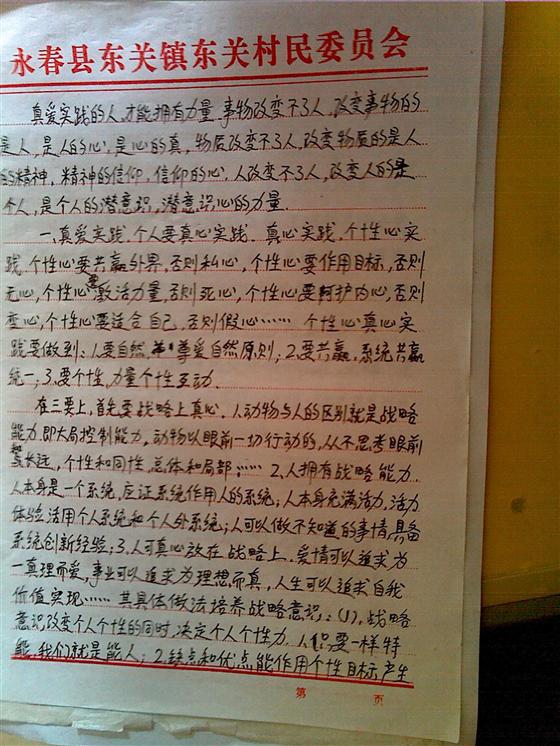 永春县东关镇东关村民委员会
真爱实践的人,才能拥有力量.事物改变不了人,改变事物的
是人,是人的心,是心的真,物质改变不了人,改变物质的是人
的精神,精神的信仰,信仰的心.人改变不了人,改变人的是
个人,是个人的潜意识,潜意识心的力量.
一.真爱实践.个人要真心实践.真心实践,个性心实
践.个性心要共赢外界,否则私心,个性心要作用目标,否则
无心,个性心要激活力量,否则死心,个性心要呵护内心,否则
变心,个性心要适合自己,否则假心……个性心真心实
践要做到:1.要自然,尊爱自然原则;2.要共赢,系统共赢
统一;3.要个性,力量个性互动.
在三要上,首先要战略上真心.1.动物与人的区别就是战略
能力.即大局控制能力,动物以眼前一切行动的,从不思考眼前
与长远,个性和同性,总体和局部;……2.人拥有战略能力.
人本身是一个系统,应证系统作用人的系统;人本身充满活力,活力
体验活用个人系统和个人外系统;人可以做不知道的事情,具备
系统创新经验;3.人可真心放在战略上.爱情可以追求为
一真理而爱,事业可以追求为理想而真,人生可以追求自我
价值实现……其具体做法培养战略意识:(1).战略
意识改变个人个性的同时,决定个人个性力.人们要一样特
能,我们就是能人;2.缺点和优点能作用个性目标,产生
第 页